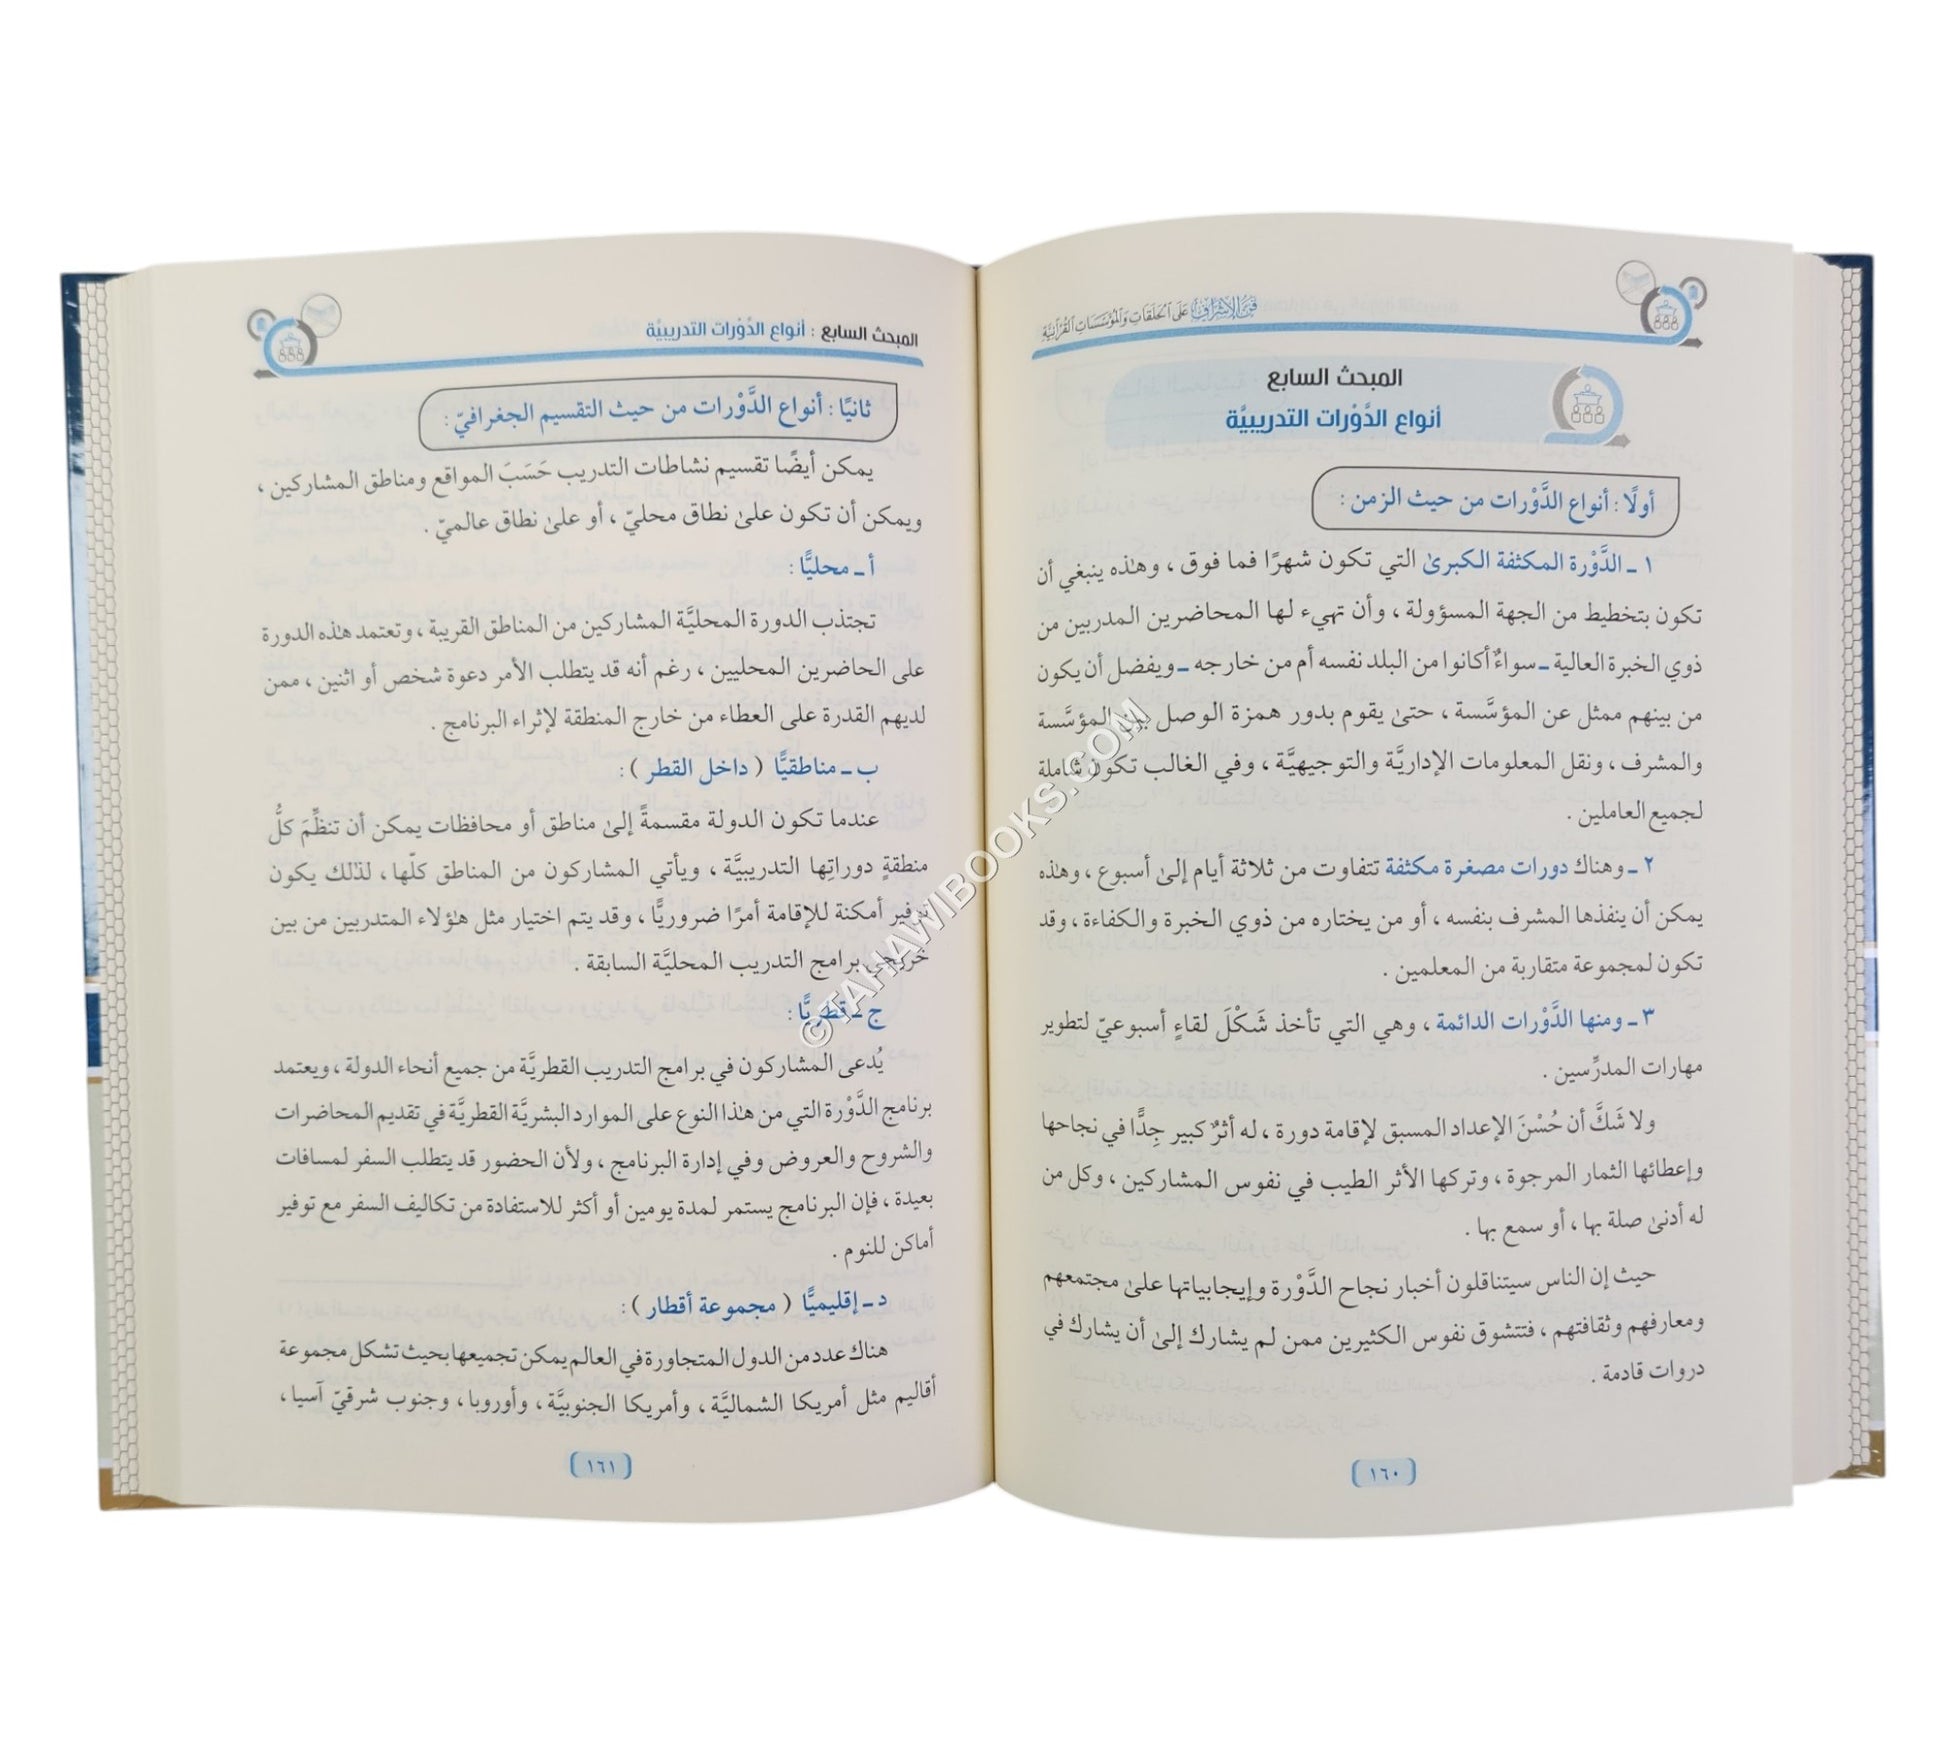 فن الإشراف على الحلقات والمؤسسات القرآنية
المبحث السابع
أنواع الدَّوْرات التدريبيَّة
أولًا : أنواع الدَّوْرات من حيث الزمن :
١ ـ الدَّوْرة المكثفة الكبرىٰ التي تكون شهرًا فما فوق ، وهٰذه ينبغي أن
تكون بتخطيط من الجهة المسؤولة ، وأن تهيء لها المحاضرين المدربين من
ذوي الخبرة العالية ـ سواءٌ أكانوا من البلد نفسه أم من خارجه ـ ويفضل أن يكون
من بينهم ممثل عن المؤسَّسة ، حتىٰ يقوم بدور همزة الوصل بين المؤسَّسة
والمشرف ، ونقل المعلومات الإداريَّة والتوجيهيَّة ، وفي الغالب تكون شاملة
لجميع العاملين .
٢ ـ وهناك دورات مصغرة مكثفة تتفاوت من ثلاثة أيام إلىٰ أسبوع ، وهٰذه
يمكن أن ينفذها المشرف بنفسه ، أو من يختاره من ذوي الخبرة والكفاءة ، وقد
تكون لمجموعة متقاربة من المعلمين .
٣ ـ ومنها الدَّوْرات الدائمة ، وهي التي تأخذ شَكْلَ لقاءٍ أسبوعيّ لتطوير
مهارات المدرِّسين .
ولا شَكَّ أن حُسْنَ الإعداد المسبق لإقامة دورة ، له أثرٌ كبير جِدًّا في نجاحها
وإعطائها الثمار المرجوة ، وتركها الأثر الطيب في نفوس المشاركين ، وكل من
له أدنىٰ صلة بها ، أو سمع بها .
حيث إن الناس سيتناقلون أخبار نجاح الدَّوْرة وإيجابياتها علىٰ مجتمعهم
ومعارفهم وثقافتهم ، فتتشوق نفوس الكثيرين ممن لم يشارك إلىٰ أن يشارك في
دروات قادمة .
( ١٦٠ )
المبحث السابع : أنواع الدَّوْرات التدريبيَّة
ثانيًا : أنواع الدَّوْرات من حيث التقسيم الجغرافيّ :
يمكن أيضًا تقسيم نشاطات التدريب حَسَبَ المواقع ومناطق المشاركين ،
ويمكن أن تكون علىٰ نطاق محليّ ، أو علىٰ نطاق عالميّ .
أ ـ محليًّا :
تجتذب الدورة المحليَّة المشاركين من المناطق القريبة ، وتعتمد هٰذه الدورة
على الحاضرين المحليين ، رغم أنه قد يتطلب الأمر دعوة شخص أو اثنين ، ممن
لديهم القدرة على العطاء من خارج المنطقة لإثراء البرنامج .
ب ـ مناطقيًّا ( داخل القطر ) :
عندما تكون الدولة مقسمةً إلىٰ مناطق أو محافظات يمكن أن تنظِّمَ كلُّ
منطقةٍ دوراتِها التدريبيَّة ، ويأتي المشاركون من المناطق كلّها ، لذٰلك يكون
توفير أمكنة للإقامة أمرًا ضروريًّا ، وقد يتم اختيار مثل هٰؤلاء المتدربين من بين
خريجي برامج التدريب المحليَّة السابقة .
ج ـ قطريًّا :
يُدعى المشاركون في برامج التدريب القطريَّة من جميع أنحاء الدولة ، ويعتمد
برنامج الدَّوْرة التي من هٰذا النوع على الموارد البشريَّة القطريَّة في تقديم المحاضرات
والشروح والعروض وفي إدارة البرنامج ، ولأن الحضور قد يتطلب السفر لمسافات
بعيدة ، فإن البرنامج يستمر لمدة يومين أو أكثر للاستفادة من تكاليف السفر مع توفير
أماكن للنوم .
د ـ إقليميًّا ( مجموعة أقطار ) :
هناك عدد من الدول المتجاورة في العالم يمكن تجميعها بحيث تشكل مجموعة
أقاليم مثل أمريكا الشماليَّة ، وأمريكا الجنوبيَّة ، وأوروبا ، وجنوب شرقيّ آسيا ،
( ١٦١ )
© TAHAWIBOOKS.COM